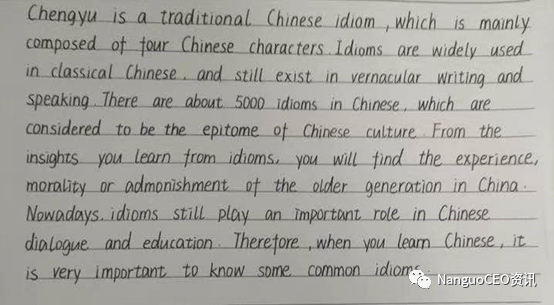 Chengyu is a traditional Chinese idiom, which is mainly
composed of four Chinese characters. Idioms are widely used
in classical Chinese. and still exist in vernacular writing and
speaking. There are about 5000 idioms in Chinese, which are
considered to be the epitome of Chinese culture. From the
insights you learn from idioms, you will find the experience,
morality or admonishment of the older generation in China.
Nowadays. idioms still play an important role in Chinese
dialogue and education. Therefore, when you learn Chinese, it
is very important to know some common idioms.
NanguoCEO资讯